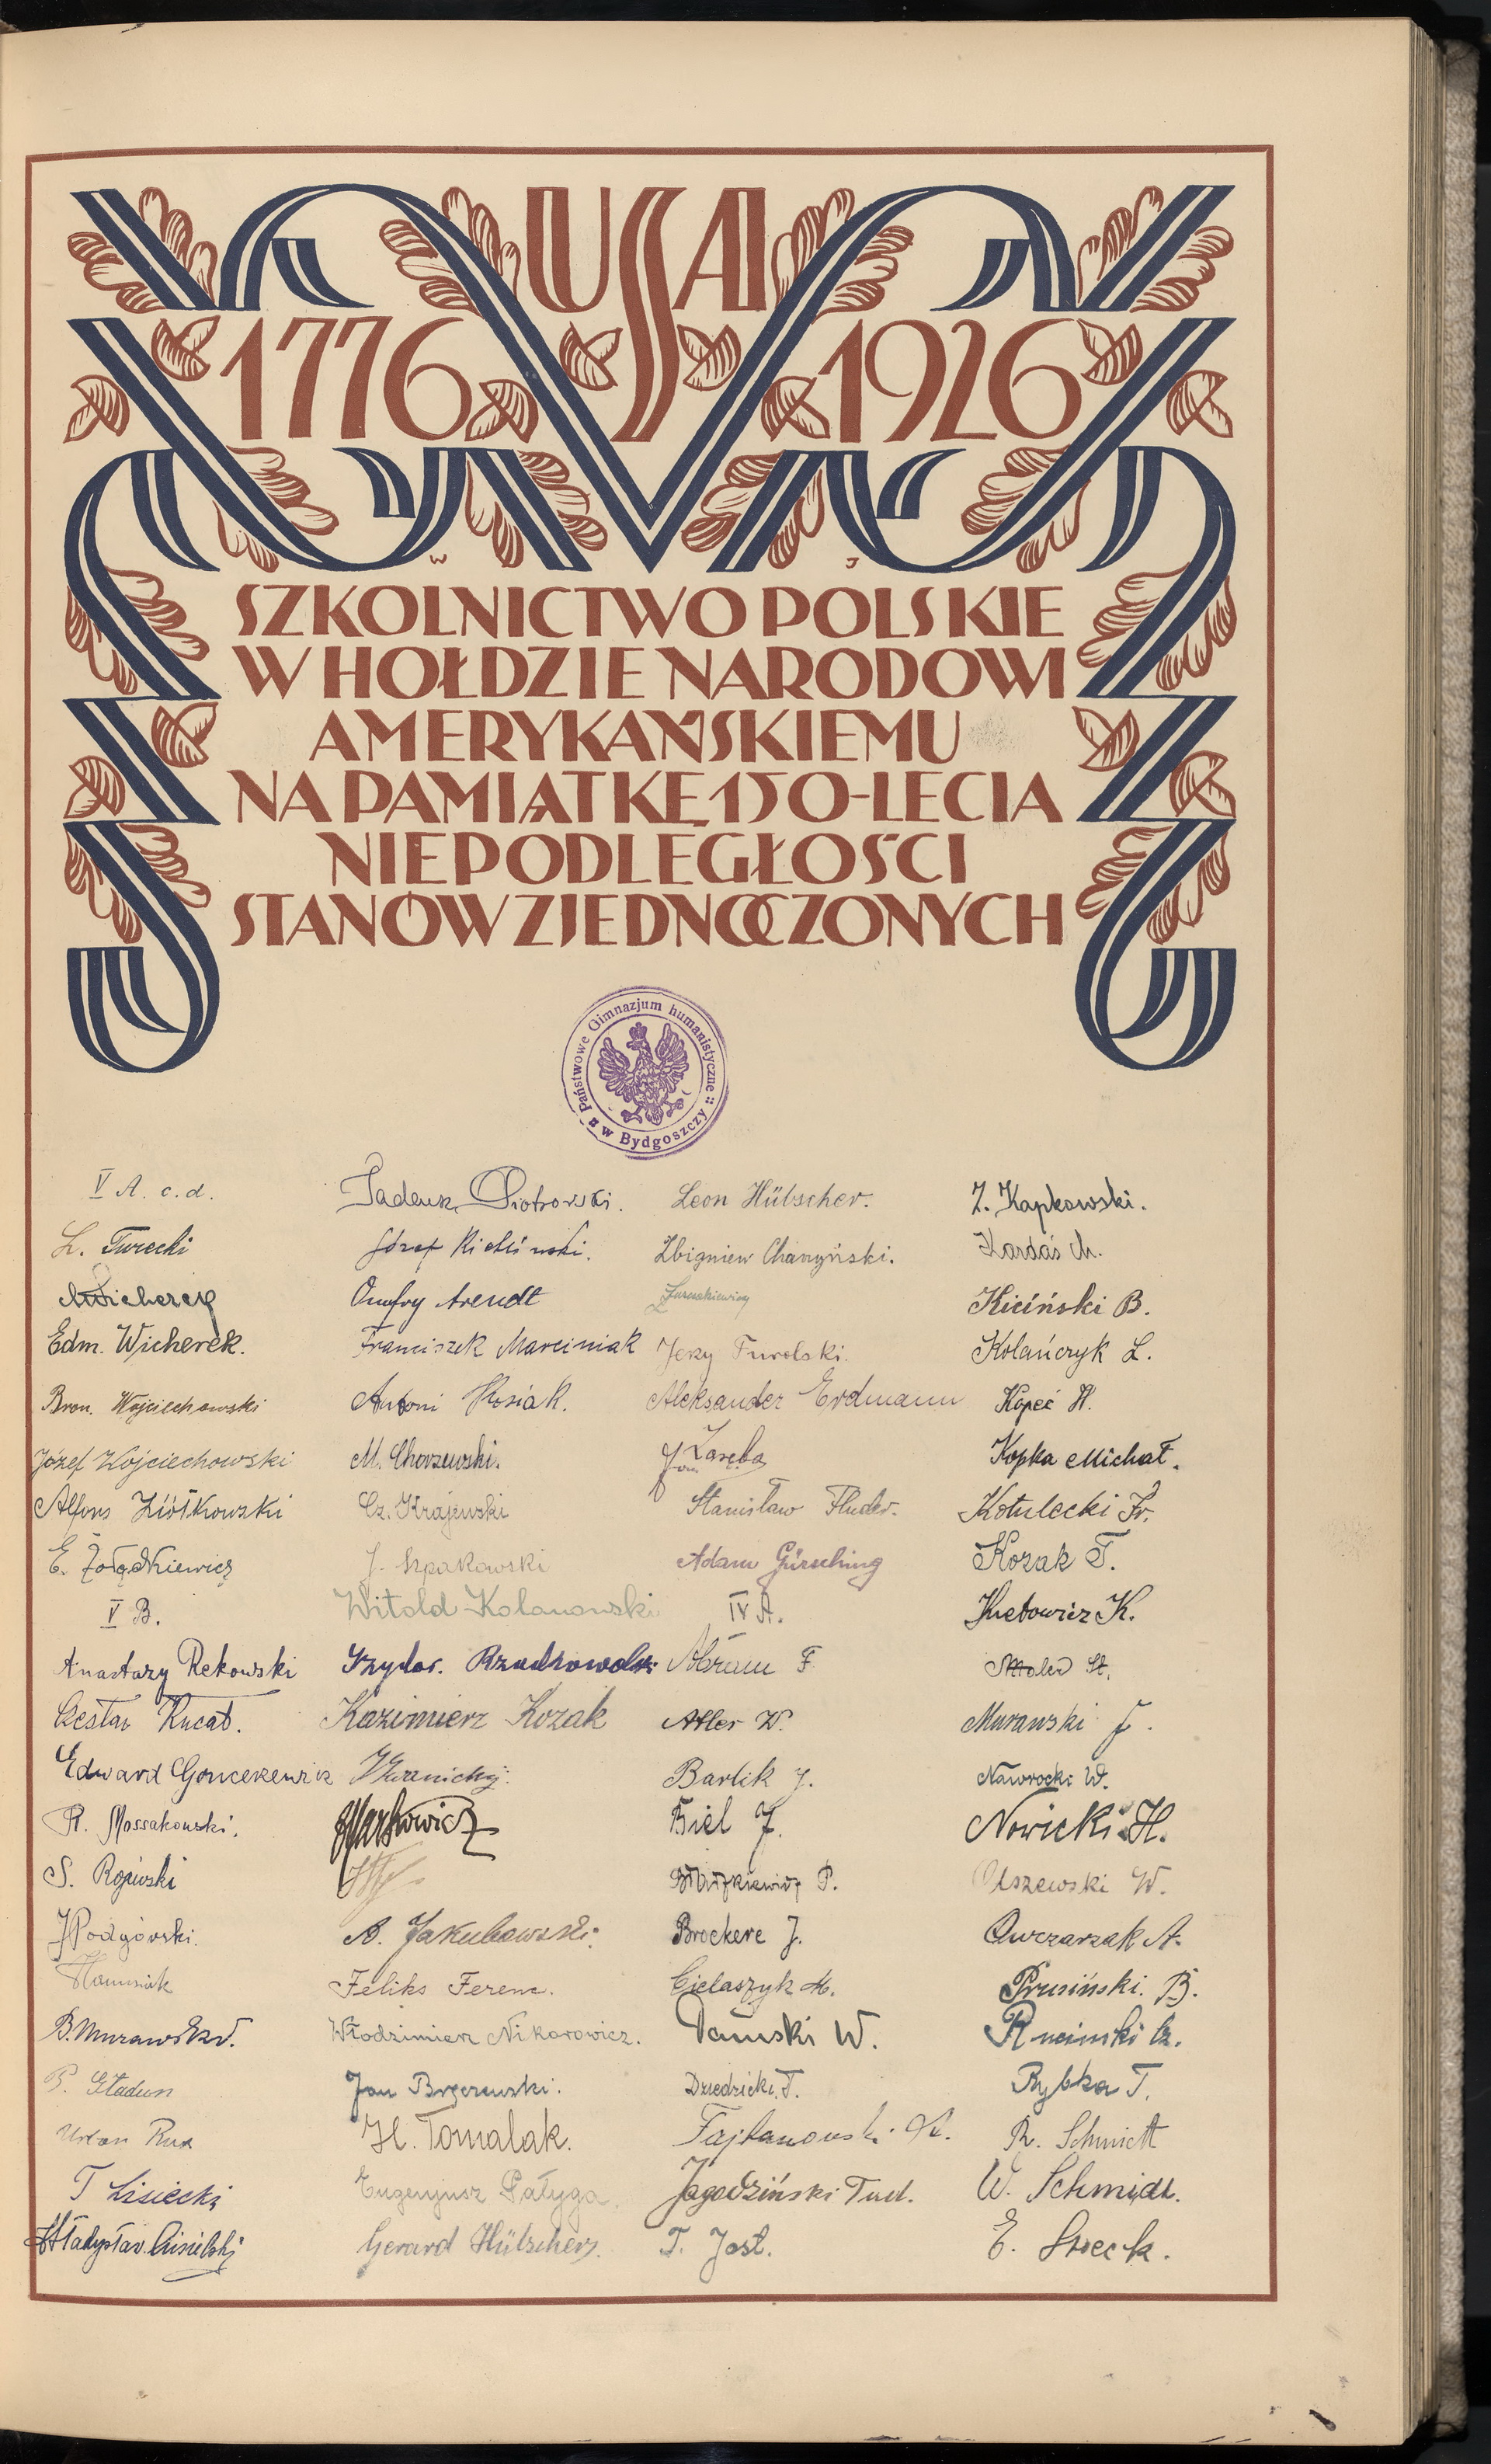 USA
1776 1926
W J
SZKOLNICTWO POLSKIE
W HOŁDZIE NARODOWI
AMERYKAŃSKIEMU
NA PAMIĄTKĘ 150-LECIA
NIEPODLEGŁOŚCI
STANÓW ZJEDNOCZONYCH
Państwowe Gimnazjum humanistyczne
w Bydgoszczy
V A. c. d.
L. Turecki
Edm. Wicherek.
Bron. Wojciechowski
Józef Wojciechowski
Alfons Ziółkowski
E. Żołądkiewicz
V B.
Anastazy Rekowski
Edward
R. Mossakowski.
S.
Podgórski.
B. Murawski.
P. Gładun
T Lisiecki
Władysław
Tadeusz Piotrowski.
Józef
Onufry Arendt
Franciszek Marciniak
Antoni
M. Chorzewski.
Cz. Krajewski
J. Szpakowski
Witold Kolanowski
Izydor.
Kazimierz Kozak
A. Jakubowski.
Feliks Ferenc.
Włodzimierz Nikorowicz.
Jan
H. Tomalak.
Eugenjusz Pałyga.
Gerard Hübscher.
Leon Hübscher.
Zbigniew
Jerzy
Aleksander Erdmann
Jan Zaręba
Stanisław Fluder.
Adam Gürsching
IV A.
Abram F.
Adler W.
Bartik J.
Biel J.
P.
Brockere J.
Cielaszyk M.
Dański W.
Dziedzicki T.
Jagodziński Tad.
T. Jost.
Z. Kapkowski.
Kardaś M.
Kiciński B.
Kolańczyk L.
Kopeć H.
Kopka Michał.
Kotulecki Fr.
Kozak T.
K.
St.
Murawski J.
Nawrocki W.
Nowicki H.
Olszewski W.
Owczarzak A.
Prusiński. B.
Rucinski Cz.
Rybka T.
R. Schmidt
W. Schmidt.
E.